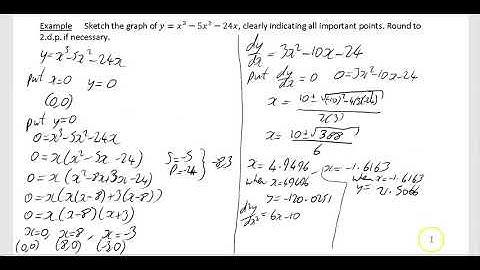 Example Sketch the graph of y = x³ − 5x² − 24x, clearly indicating all important points. Round to
2.d.p. if necessary.
y=x³-5x²-24x
put x=0 y=0
(0,0)
put y=0
0=x³-5x²-24x
0=x(x²-5x-24) S=-5
P=-24 } -8,3
0=x(x²-8x+3x-24)
0=x(x(x-8)+3(x-8))
0=x(x-8)(x+3)
x=0, x=8, x=-3
(0,0) (8,0) (-3,0)
dy/dx = 3x²-10x-24
put dy/dx = 0 0=3x²-10x-24
x = 10±√((-10)²-4(3)(-24)) / 2(3)
x = 10±√388 / 6
x = 4.9496, x=-1.6163
when x=4.9496 when x=-1.6163
y=-120.0251 y= 21.5066
d²y/dx² = 6x-10